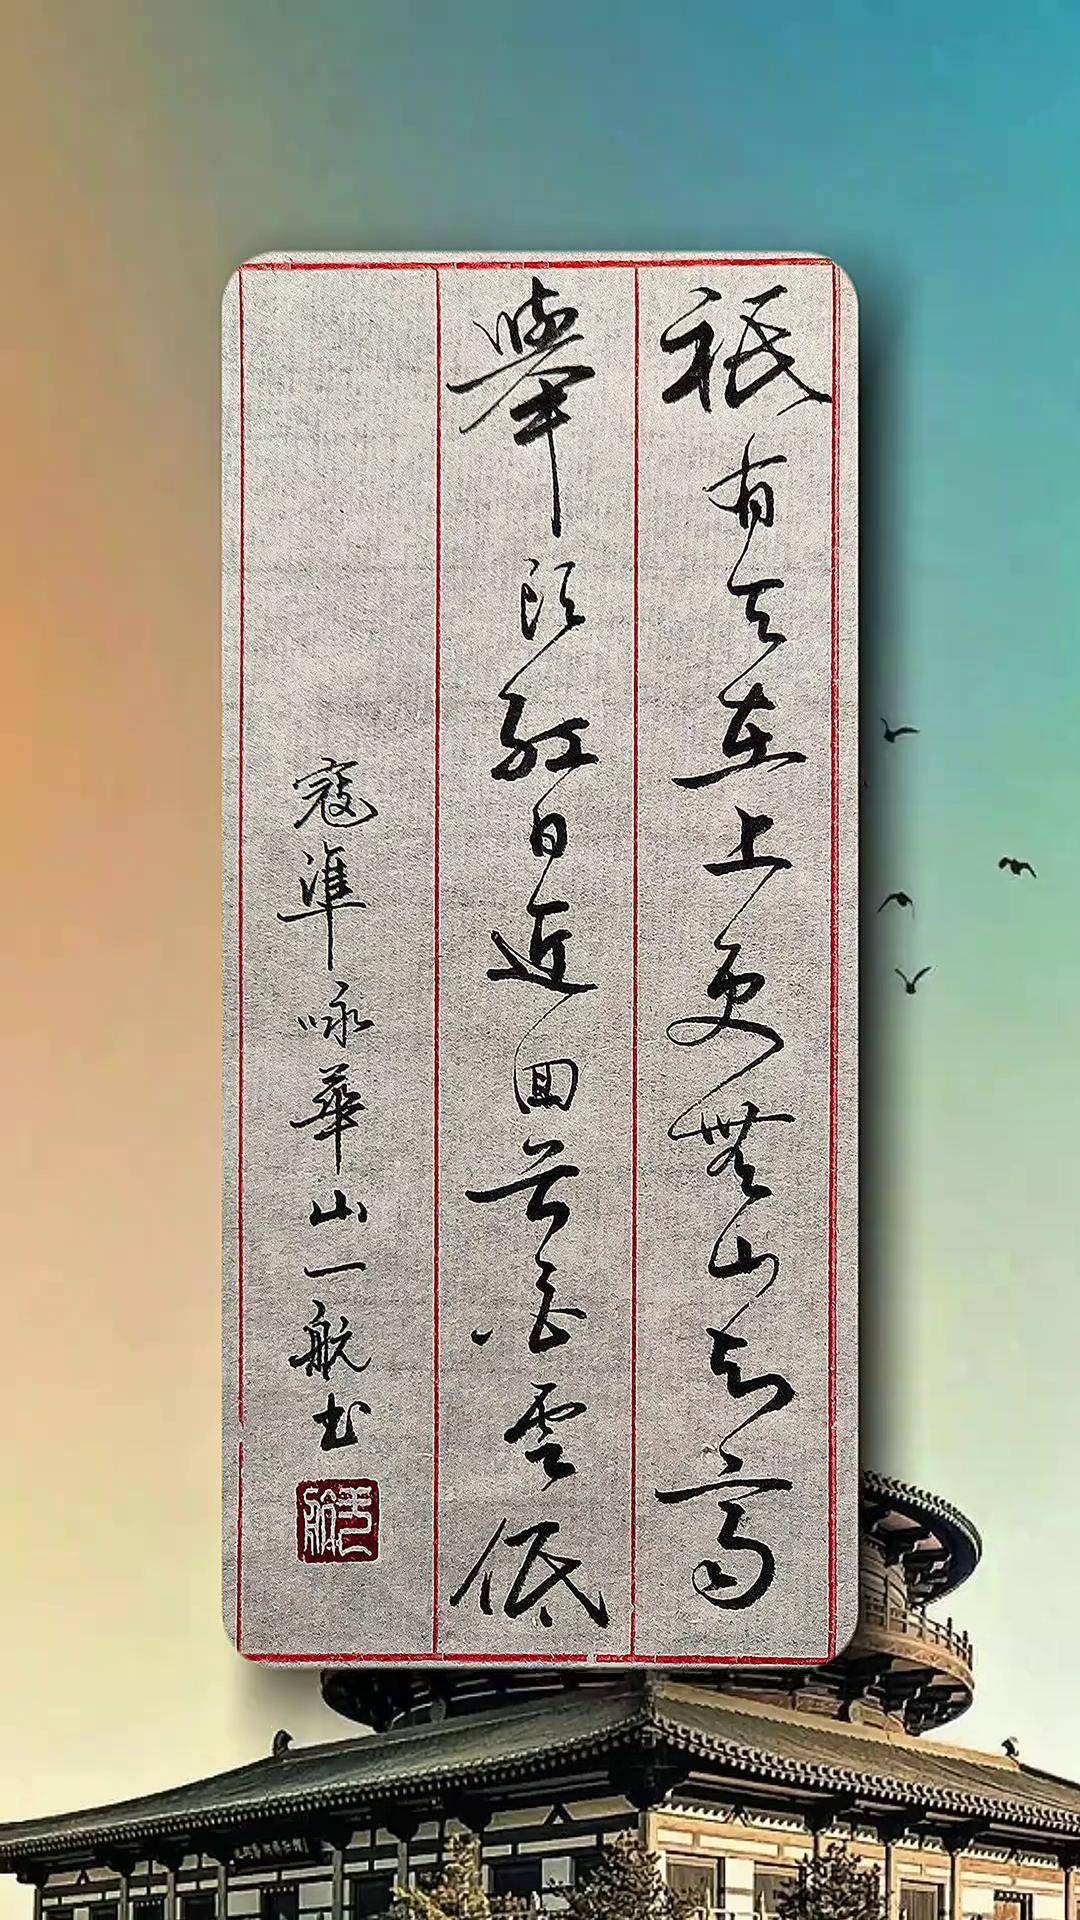 祇有天在上更無山與齊
舉頭紅日近回首白雲低
寇準咏華山一航书